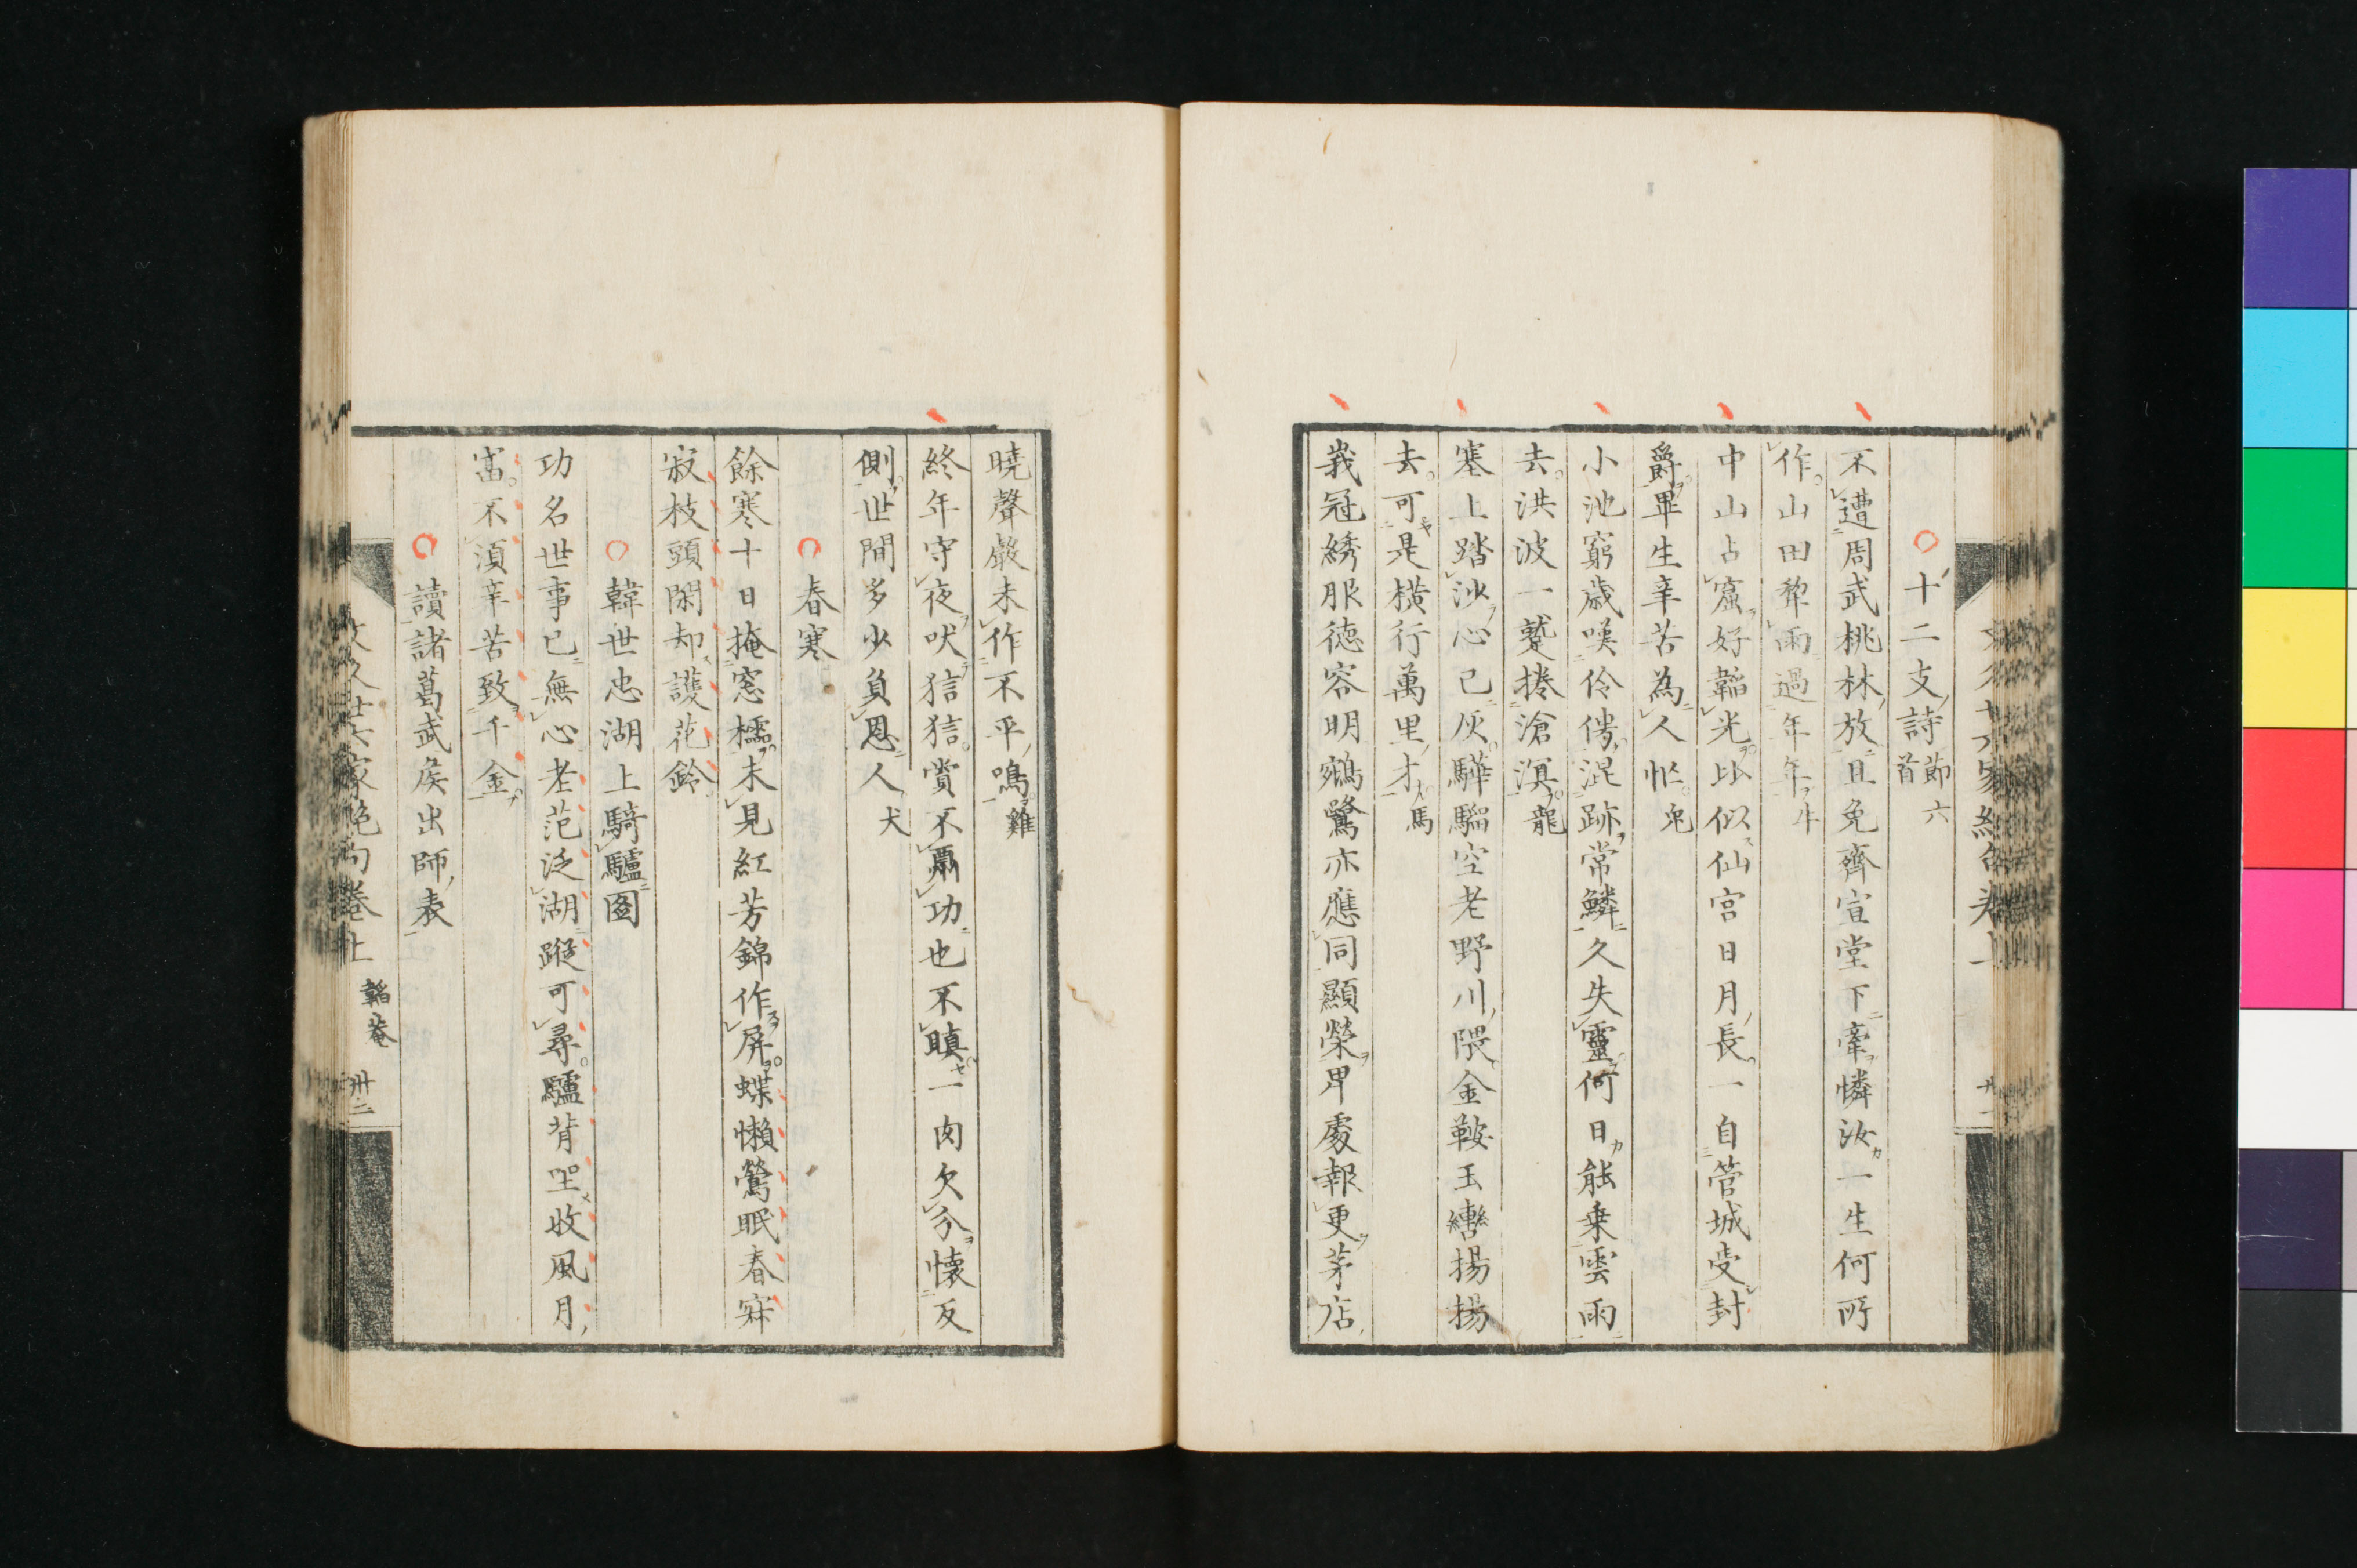 十二支詩節六首
不遭周武桃林放且免齊宣堂下牽憐汝一生何所
作山田犂雨過年年牛
中山占窟好韜光比似仙宮日月長一自管城受封
爵畢生辛苦為人忙兎
小池窮歳嘆伶俜混跡常鱗久失靈何日能乗雲雨
去洪波一蹙捲滄溟龍
塞上踏沙心已灰驊騮空老野川隈金鞍玉轡揚揚
去可是橫行萬里才馬
峩冠綉服徳容明鵷鷺亦應同顯榮卑處報更茅店
曉聲嚴未作不平鳴雞
終年守夜吠狺狺賞不爵功也不瞋一肉欠分懐反
側世間多少負恩人犬
春寒
餘寒十日掩窓櫺未見紅芳錦作屏蝶懶鶯眠春寂
寂枝頭閑却護花鈴
韓世忠湖上騎驢圖
功名世事已無心老范泛湖蹤可尋驢背坐收風月
富不湏辛苦致千金
讀諸葛武侯出師表
家絶句巻上
韜菴
卅二